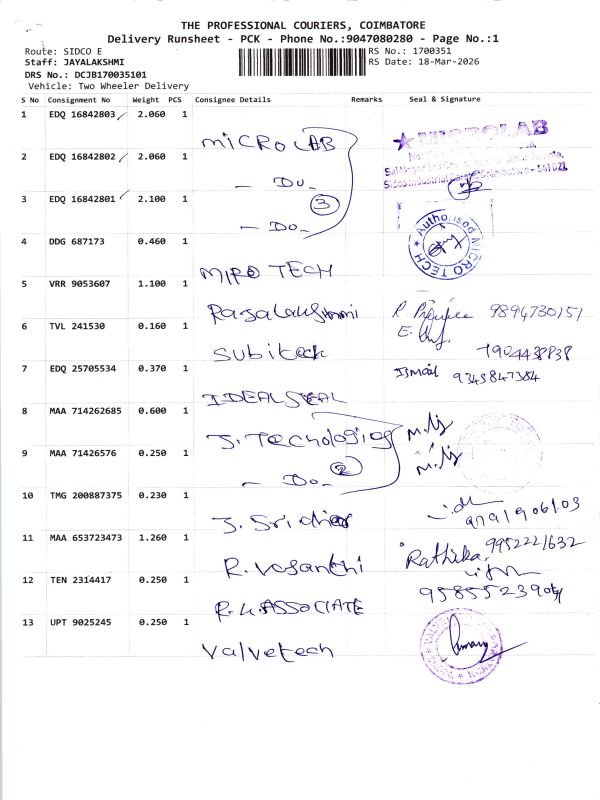 THE PROFESSIONAL COURIERS, COIMBATORE
Delivery Runsheet - PCK - Phone No.:9047080280 - Page No.:1
Route: SIDCO E
RS No.: 1700351
Staff: JAYALAKSHMI
RS Date: 18-Mar-2026
DRS No.: DCJB170035101
Vehicle: Two Wheeler Delivery
S No Consignment No Weight PCS Consignee Details Remarks Seal & Signature
1 EDQ 16842803 2.060 1
MICROLAB
★ MICROLAB
2 EDQ 16842802 2.060 1
Sidco Industrial Coimbatore - 641 021
- Do -
3 EDQ 16842801 2.100 1
3
- Do -
Authorised MICRO TECH
4 DDG 687173 0.460 1
MIRO TECH
5 VRR 9053607 1.100 1
Rajalakshmi
9894730151
6 TVL 241530 0.160 1
Subitech
7 EDQ 25705534 0.370 1
Ismail 9345847384
IDEAL SEAL
8 MAA 714262685 0.600 1
J. Tecnologies
9 MAA 71426576 0.250 1
- Do - 2
10 TMG 200887375 0.230 1
J. Sridhar
11 MAA 653723473 1.260 1
Rathika 9952221632
R. Vasanthi
12 TEN 2314417 0.250 1
R.K ASSOCIATE
13 UPT 9025245 0.250 1
Valvetech